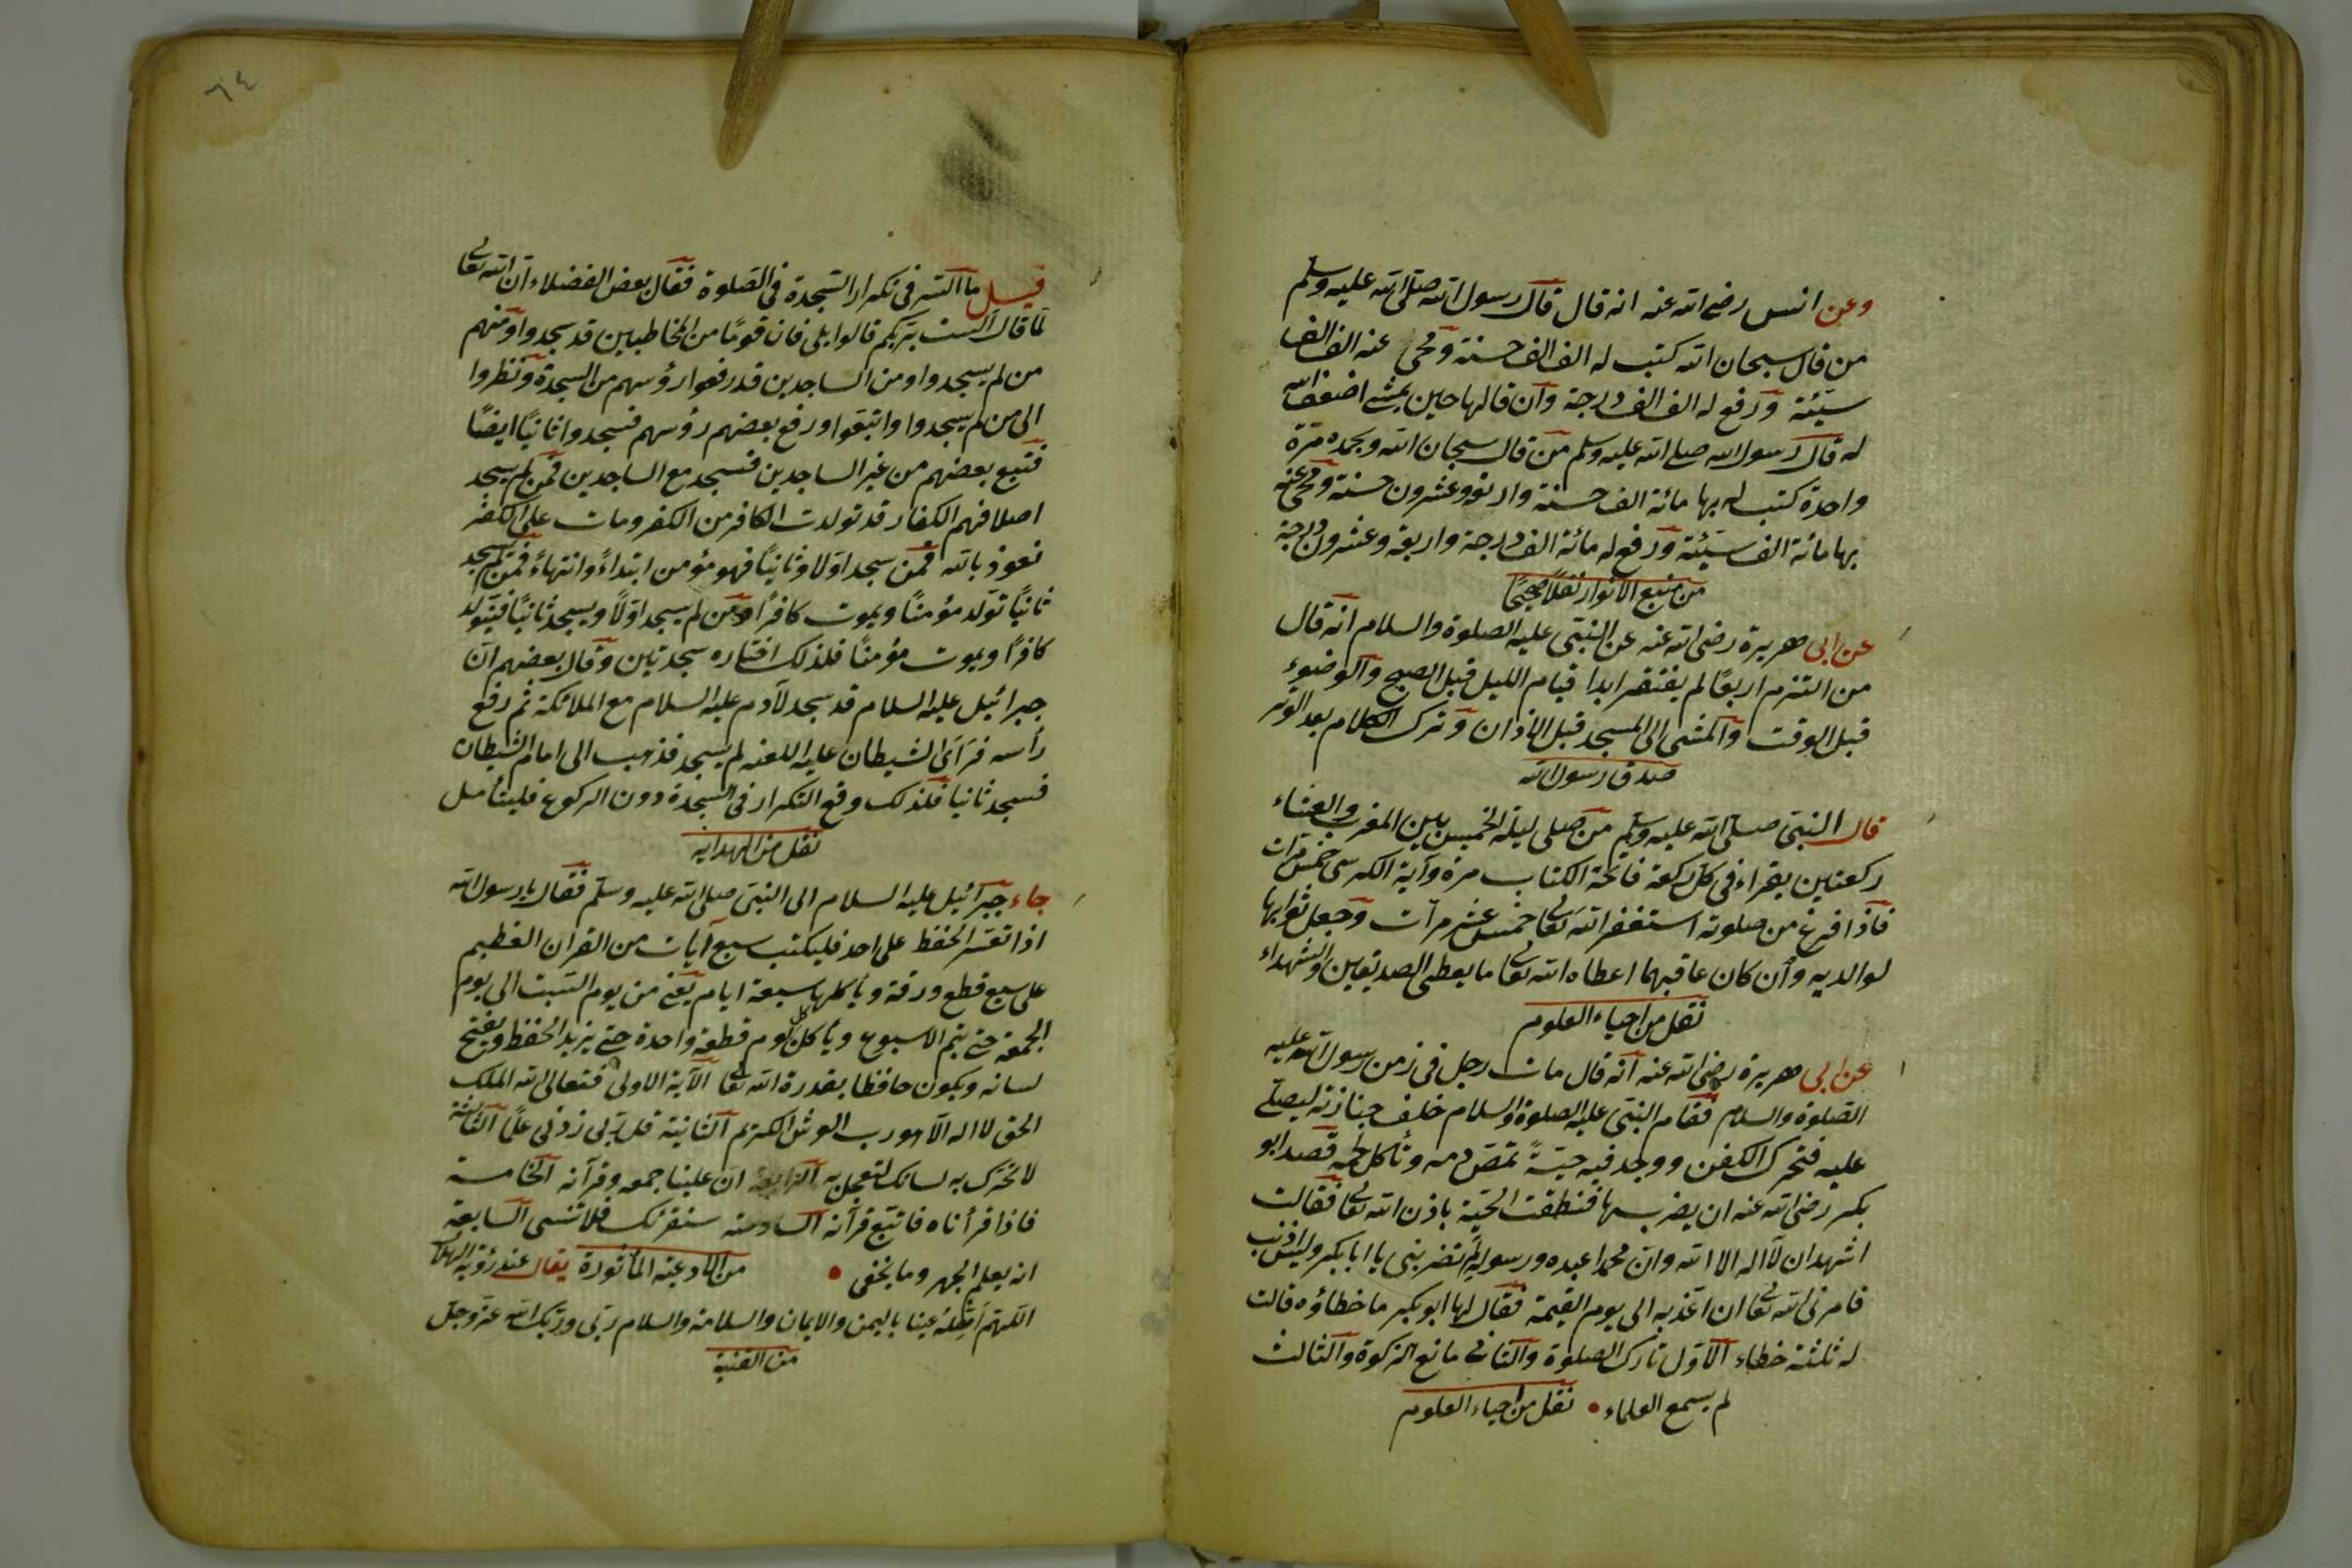 وعن انس رضى الله عنه انه قال قال رسول الله صلى الله عليه وسلم
من قال سبحان الله كتب له الف الف حسنة ومحى عنه الف الف
سيّئة ورفع له الف الف درجة وان قالها حين يمشى اضعف الله
له قال رسول الله صلى الله عليه وسلم من قال سبحان الله وبحمده مرّة
واحدة كتب له بها مائة الف حسنة واربعة وعشرون حسنة ومحى عنه
بها مائة الف سيّئة ورفع له مائة الف درجة واربعة وعشرون درجة
من منبع الانوار نقلًا صحيحًا
عن ابى هريرة رضى الله عنه عن النبىّ عليه الصلوة والسلام انه قال
من التزم اربعًا لم يفتقر ابدا قيام الليل قبل الصبح والوضوء
قبل الوقت والمشى الى المسجد قبل الاذان وترك الكلام بعد الوتر
صدق رسول الله
قال النبىّ صلى الله عليه وسلم من صلى ليلة الخميس بين المغرب والعشاء
ركعتين يقراء فى كل ركعة فاتحة الكتاب مرة وآية الكرسى خمس مرات
فاذا فرغ من صلوته استغفر الله تعالى خمس عشر مرآت وجعل ثوابها
لوالديه وان كان عاقبهما اعطاه الله تعالى ما يعطى الصديقين والشهداء
نقل من احياء العلوم
عن ابى هريرة رضى الله عنه انه قال مات رجل فى زمن رسول الله عليه
الصلوة والسلام فقام النبىّ عليه الصلوة والسلام خلف جنازته ليصلّى
عليه فتحرك الكفن ووجد فيه حيّةً تمصّ دمه وتأكل لحمه قصد ابو
بكر رضى الله عنه ان يضربها فنطقت الحيّة باذن الله تعالى فقالت
اشهد ان لآ اله الا الله وان محمدا عبده ورسوله لم تضربنى يا ابا بكر وليس ذنب
فامرنى الله تعالى ان اعذبه الى يوم القيمة فقال لها ابو بكر ما خطاؤه قالت
له ثلثة خطاء الآول تارك الصلوة والثانى مانع الزكوة والثالث
لم يسمع العلماء • نقل من احياء العلوم
٦٤
قيل ما السّر فى تكرار السّجدة فى الصّلوة فقال بعض الفضلاء ان الله تعالى
لمّا قال الست بربّكم قالوا بلى فان قومًا من المخاطبين قد سجدوا ومنهم
من لم يسجدوا ومن الساجدين قد رفعوا رؤسهم من السجدة ونظروا
الى من لم يسجدوا واتبعوا ورفع بعضهم رؤسهم فسجدوا ثانيًا ايضًا
فتبع بعضهم من غير الساجدين فسجد مع الساجدين فمن لم يسجد
اصلا فهم الكفار قد تولدت الكافر من الكفر ومات على الكفر
نعوذ بالله فمن سجد اولا وثانيًا فهو مؤمن ابتداءً وانتهاءً فمن لم يسجد
ثانيًا تولد مؤمنًا ويموت كافرًا ومن لم يسجد اوّلًا ويسجد ثانيًا فيتولد
كافرًا ويموت مؤمنًا فلذلك اختاره سجدتين وقال بعضهم ان
جبرائيل عليه السلام قد سجد لآدم عليه السلام مع الملائكة ثم رفع
رأسه فرآى الشيطان عليه اللعنه لم يسجد فذهب الى امام الشيطان
فسجد ثانيا فلذلك وقع التكرار فى السجدة دون الركوع فليتأمل
نقل من الهدايه
جاء جبرآئيل عليه السلام الى النبىّ صلى الله عليه وسلم فقال يا رسول الله
اذا تعسّر الحفظ على احد فليكتب سبع آيات من القرآن العظيم
على سبع قطع ورقة ويأكلها سبعة ايام يعنى من يوم السّبت الى يوم
الجمعة حتى يتم الاسبوع ويأكل كل يوم قطعة واحدة حتى يزيد الحفظ ويفتح
لسانه ويكون حافظا بقدرة الله تعالى الآية الاولى فتعالى الله الملك
الحق لا اله الّا هو رب العرش الكريم الثانية قل ربّى زدنى علمًا الثالثة
لا تحرّك به لسانك لتعجل به الرابعة ان علينا جمعه وقرآنه الخامسة
فاذا قرأناه فاتبّع قرآنه السادسة سنقرئك فلا تنسى السابعة
انه يعلم الجهر وما يخفى • من الادعية المأثورة يقال عند رؤية الهلال
اللّهّم اَهِلّهُ علينا باليمن والايمان والسلامة والسلام ربّى وربّك الله عزّ وجلّ
من القنية